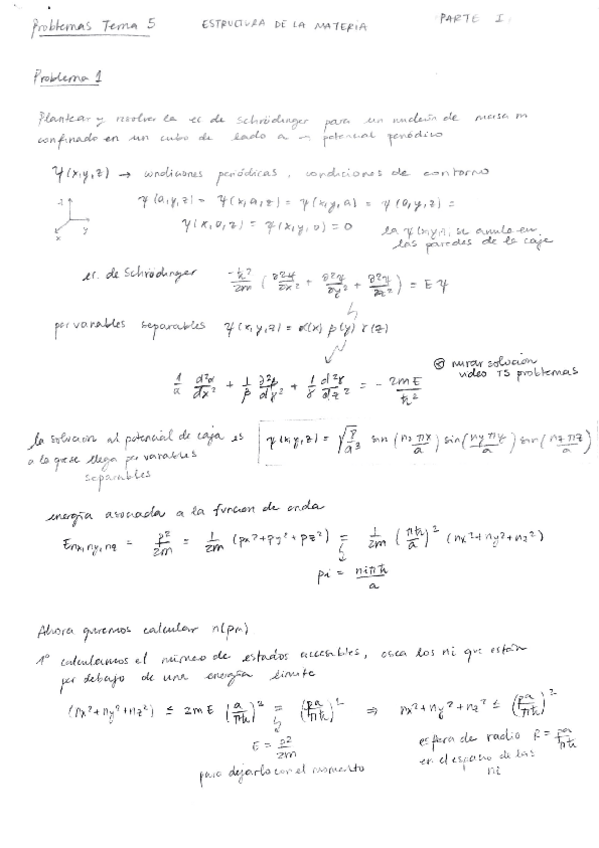 Problemas Tema 5 ESTRUCTURA DE LA MATERIA PARTE I.
Problema 1
Plantear y resolver la ec de Schrödinger para un nucleón de masa m
confinado en un cubo de lado a → potencial periódico
Ψ(x,y,z) → condiciones periódicas, condiciones de contorno
z y x
Ψ(a,y,z) = Ψ(x,a,z) = Ψ(x,y,a) = Ψ(0,y,z) =
Ψ(x,0,z) = Ψ(x,y,0) = 0 la Ψ(x,y,z) se anula en
las paredes de la caja
ec. de Schrödinger -ħ²/2m (∂²Ψ/∂x² + ∂²Ψ/∂y² + ∂²Ψ/∂z²) = E Ψ
por variables separables Ψ(x,y,z) = α(x) β(y) γ(z)
1/α d²α/dx² + 1/β ∂²β/∂y² + 1/γ d²γ/dz² = - 2mE/ħ²
mirar solución
video T5 problemas
la solución al potencial de caja es
a la que se llega por variables
separables
Ψ(x,y,z) = √8/a³ sen (nx πx/a) sin (ny πy/a) sin (nz πz/a)
energía asociada a la función de onda
Enx,ny,nz = p²/2m = 1/2m (px² + py² + pz²) = 1/2m (πħ/a)² (nx² + ny² + nz²)
pi = niπħ/a
Ahora queremos calcular n(pm)
1º calculamos el número de estados accesibles, osea los ni que están
por debajo de una energía límite
(nx² + ny² + nz²) ≤ 2mE (a/πħ)² = (pa/πħ)² ⇒ nx² + ny² + nz² ≤ (pa/πħ)²
E = p²/2m
para dejarlo con el momento
esfera de radio R = pa/πħ
en el espacio de las
ni